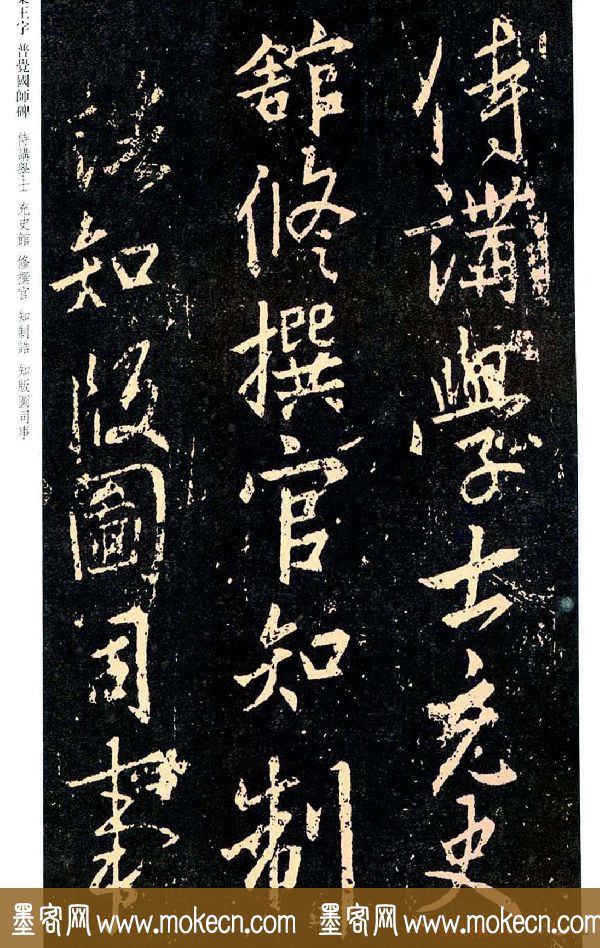 侍講學士充史
館修撰官知制
誥知版圖司事
集王字 普覺國師碑 侍講學士 充史館 修撰官 知制誥 知版圖司事
墨客网 www.mokecn.com 墨客网 www.mokecn.com